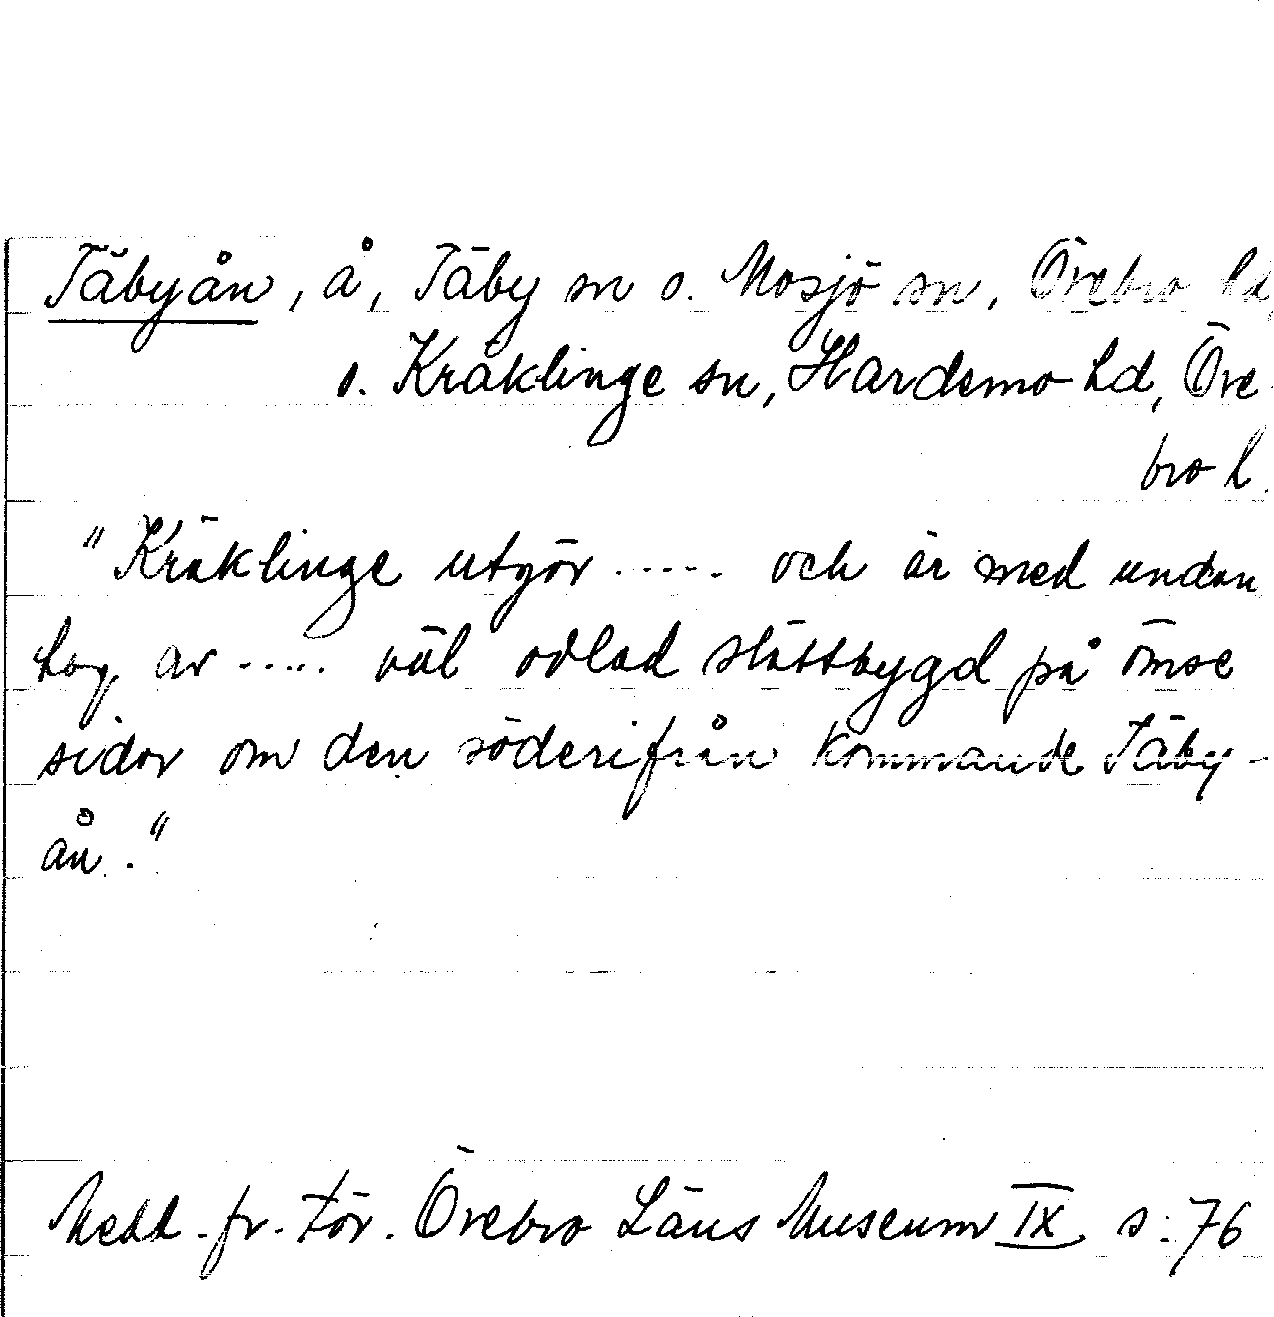 Täbyån, å, Täby sn o. Mosjö sn, Örebro hd,
o. Kräklinge sn, Hardemo hd, Öre-
bro l.
"Kräklinge utgör ..... och är med undan
tag av ..... väl odlad slättbygd på ömse
sidor om den söderifrån kommande Täby-
ån."
Medd. fr. För. Örebro Läns Museum IX s. 76